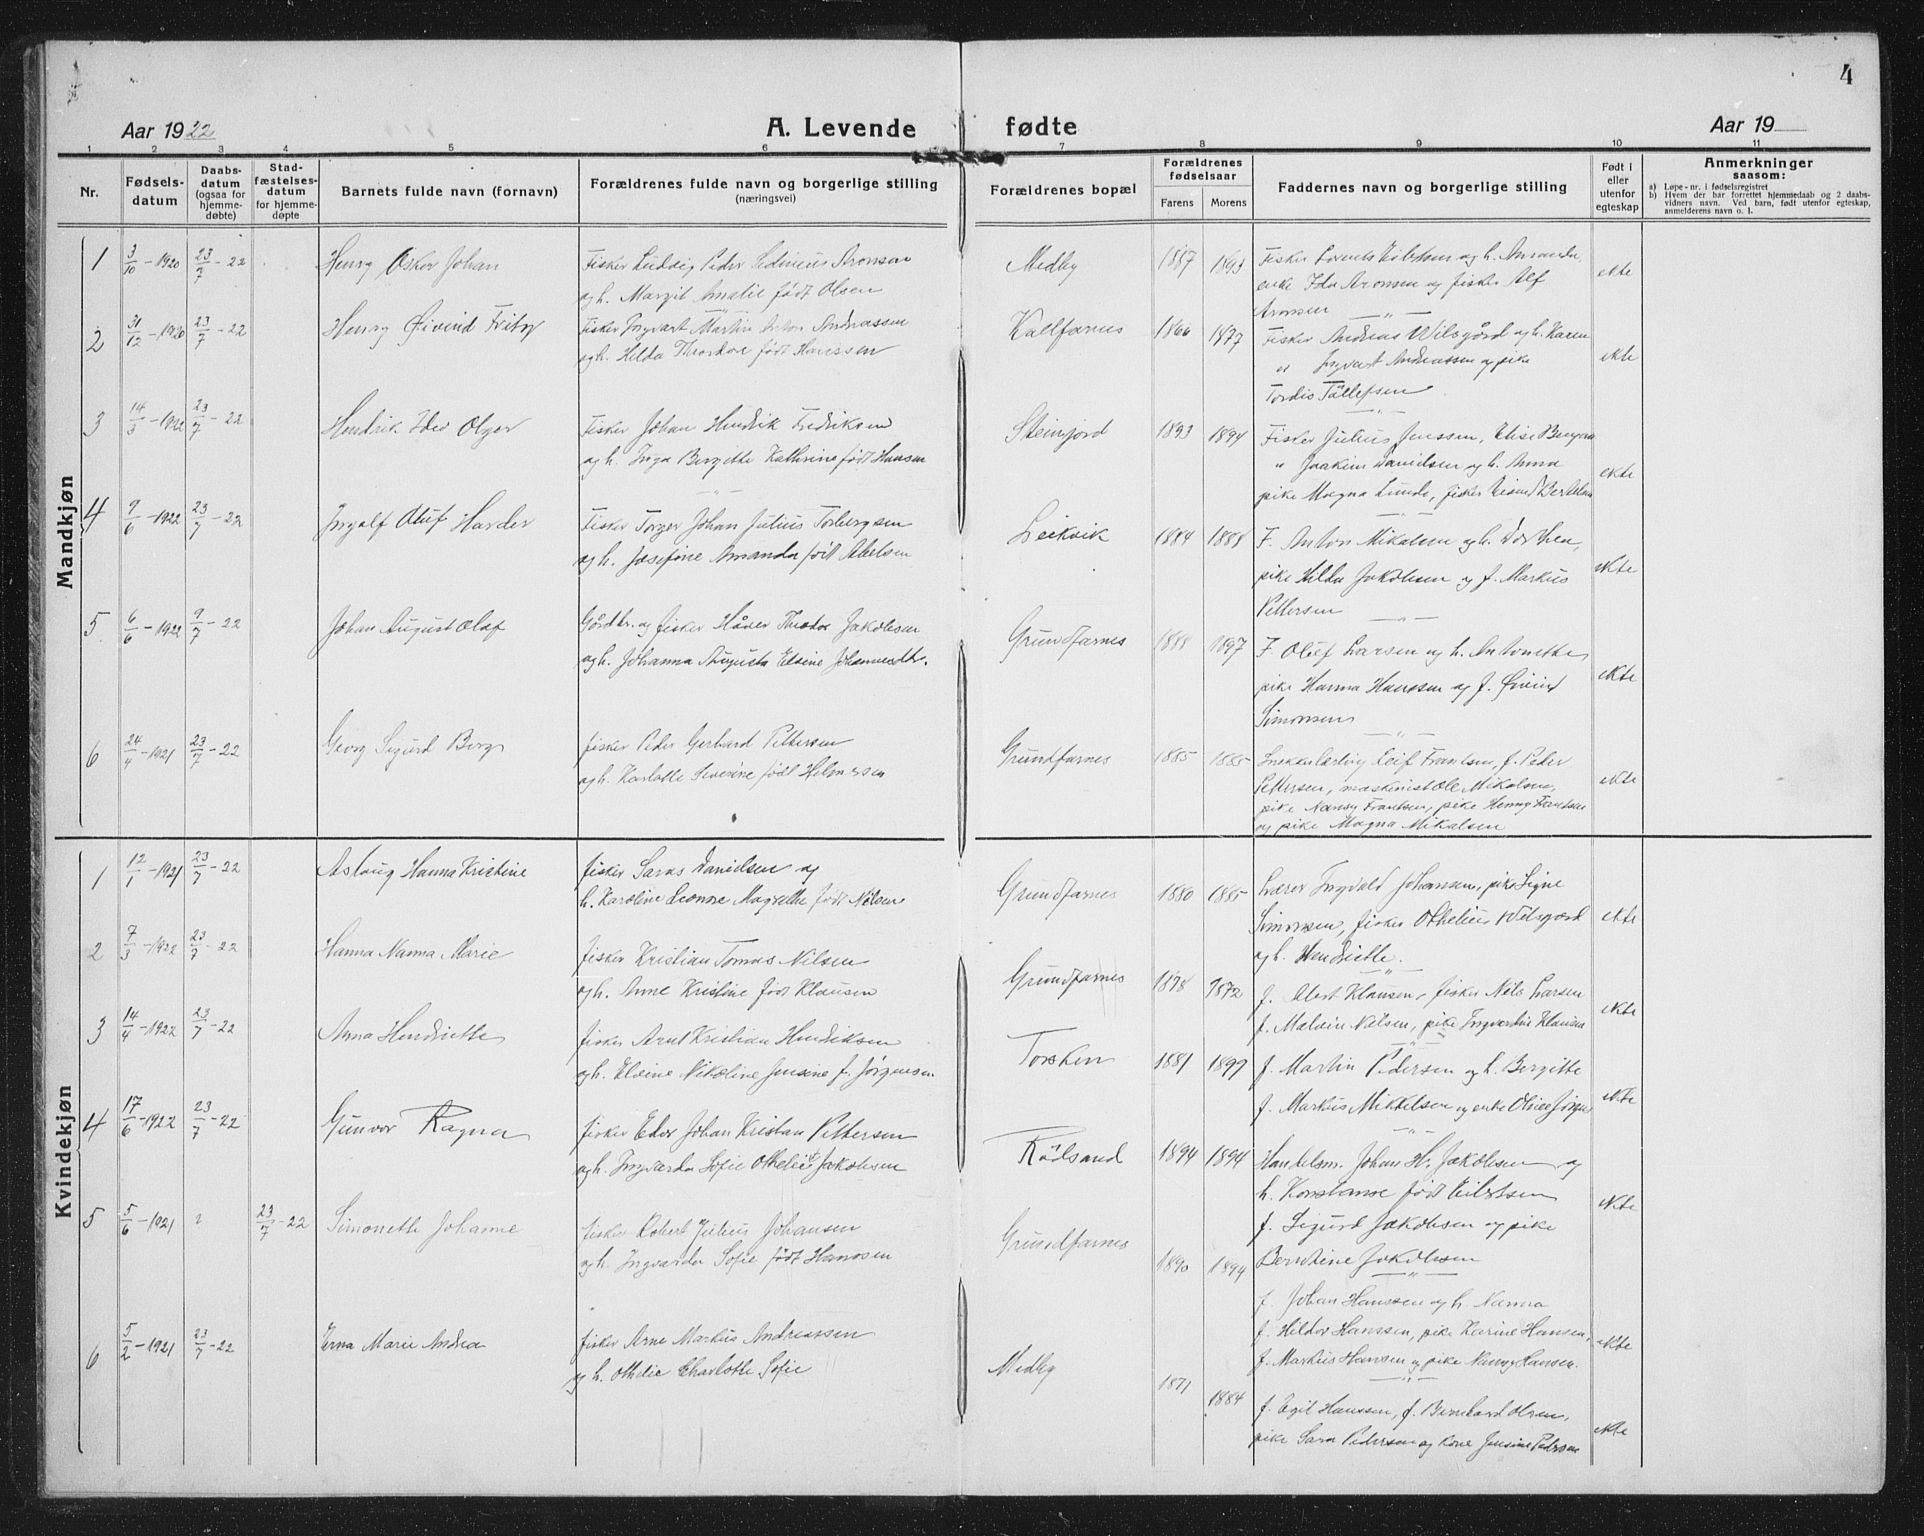 4
Aar 1922
A. Levende
fødte
Aar 19
1 2 3 4 5 6 7 8 9 10 11
Nr.
Fødsels-
datum
Daabs-
datum
(ogsaa for
hjemme-
døbte)
Stad-
fæstelses-
datum
for hjemme-
døpte
Barnets fulde navn (fornavn)
Forældrenes fulde navn og borgerlige stilling
(næringsvei)
Forældrenes bopæl
Forældrenes
fødselsaar
Farens
Morens
Faddernes navn og borgerlige stilling
Født i
eller
utenfor
egteskap
Anmerkninger
saasom:
a) Løpe-nr. i fødselsregistret
b) Hvem der har forrettet hjemmedaab og 2 daabs-
vidners navn. Ved barn, født utenfor egteskap,
anmelderens navn o. l.
Mandkjøn
1 3/10 - 1920 23/7 - 22 Henry Oskar Johan
Fisker Luddvig Peder Sedinius Aronsen
og h. Margit Amalie født Olsen
Medby 1887 1893
Fisker Lorents og h. Amanda,
enke Ida Aronsen og fisker Alf
Aronsen
ekte
2 31/12 - 1920 23/7 - 22 Henry Øivind Fritz
Fisker Ingvart Martin Anton Andreassen
og h. Hilda Theodore født Hanssen
Kalfarnes 1866 1877
Fisker Andreas Wilsgård og h. Karen
" Ingvart Andreassen og pike
Tordis Tøllefsen
ekte
3 14/3 - 1922 23/7 - 22 Hendrik Edor Olger
Fisker Johan Hendrik Fredriksen
og h. Inga Bergette Kathrine født Hansen
Steinfjord 1893 1894
Fisker Julius Jenssen, Elise
" Joakim Danielsen og h. Anna
pike Magna Lunde, fisker Bertelsen
ekte
4 9/6 - 1922 23/7 - 22 Ingolf Oluf Harder
Fisker Torger Johan Julius Torbergsen
og h. Josefine Amanda født Abelsen
Leikvik 1884 1888
F. Anton Mikalsen og h. Dorthea,
pike Hilda Jakobsen og f. Markus
Pettersen
ekte
5 6/6 - 1922 9/7 - 22 Johan August Olaf
Gårdbr. og fisker Håver Theodor Jakobsen
og h. Johanna Augusta Elsine Johannesdtr.
Grundfarnes 1888 1897
F. Oluf Larsen og h. Antonette,
pike Hanna Hanssen og f. Øivind
Simonsen
ekte
6 24/4 - 1921 23/7 - 22 Georg Sigurd Berg
fisker Peder Gerhard Pettersen
og h. Karlotte Severine født Helmersen
Grundfarnes 1885 1885
Leif Frantsen, f. Peder
Pettersen, maskinist Ole Mikalsen,
pike Nansy Frantsen, pike Henny Frantsen
og pike Magna Mikalsen
ekte
Kvindekjøn
1 12/1 - 1921 23/7 - 22 Aslaug Hanna Kristine
fisker Saras Danielsen og
h. Karoline Leonore Magrethe født Nilsen
Grundfarnes 1880 1885
Lærer Ingvald Johansen, pike Signe
Simonsen, fisker Othelius Wilsgård
og h. Hendriette.
ekte
2 7/3 - 1922 23/7 - 22 Hanna Nanna Marie
fisker Kristian Tomas Nilsen
og h. Anne Kristine født Klausen
Grundfarnes 1878 1872
f. Albert Klausen, fisker Nils Larsen
f. Malvin Nilsen, pike Ingvardine Klausen
ekte
3 14/4 - 1922 23/7 - 22 Anna Hendriette
fisker Arnt Kristian Hendriksen
og h. Elvine Nikoline Jensine f. Jørgensen
Torsken 1881 1899
f. Martin Pedersen og h. Bergitte
f. Markus Mikkelsen og enke Olive Jørgen
ekte
4 17/6 - 1922 23/7 - 22 Gunvor Ragna
fisker Edor Johan Kristian Pettersen
og h. Ingvarda Sofie Othelie Jakobsen
Rödsand 1894 1894
Handelsm. Johan H. Jakobsen og
h. Konstanse født Eilertsen
f. Sigurd Jakobsen og pike
Berntine Jakobsen
ekte
5 5/6 - 1921 23/7 - 22 Simonette Johanne
fisker Robert Julius Johansen
og h. Ingvarda Sofie født Hanssen
Grundfarnes 1890 1894
f. Johan Hanssen og h. Nanna
f. Hildor Hanssen, pike Karine Hansen,
f. Markus Hansen og pike Nansy Hansen.
ekte
6 5/2 - 1921 23/7 - 22 Erna Marie Andrea
fisker Arne Markus Andreassen
og h. Othelie Charlotte Sofie
Medby 1871 1884
f. Egil Hanssen, f. Bernhard Olsen,
pike Sara Pedersen og kone Jensine Pedersen
ekte